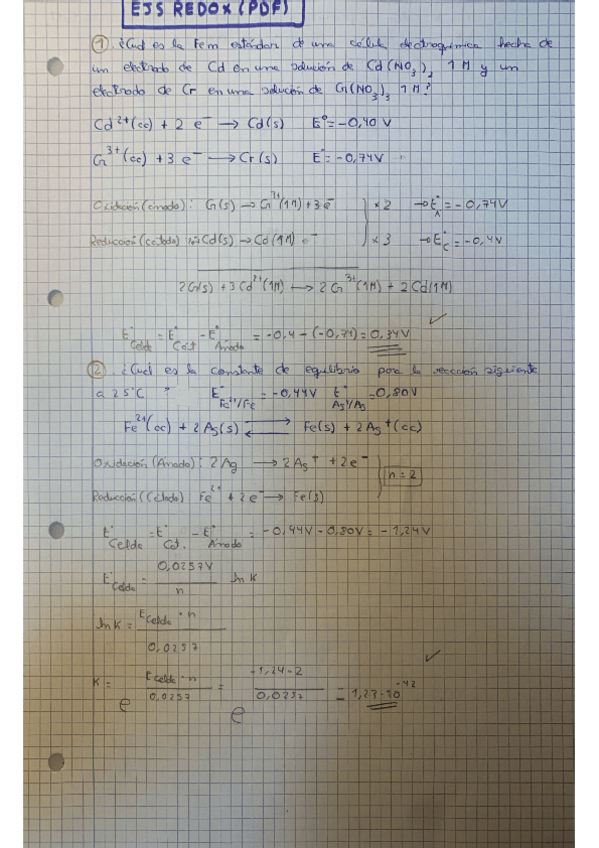 EJS REDOX (PDF)
1. ¿Cuál es la Fem estándar de una célula electroquímica hecha de
un electrodo de Cd en una solución de Cd(NO3)2 1M y un
electrodo de Cr en una solución de Cr(NO3)3 1M?
Cd²⁺(cc) + 2 e⁻ → Cd(s) E° = -0,40 V
Cr³⁺(cc) + 3 e⁻ → Cr(s) E° = -0,74V
Oxidación (ánodo): Cr(s) → Cr³⁺(1M) + 3e⁻ ×2 → E°A = -0,74V
Reducción (cátodo) Cd(s) → Cd(1M) e⁻ ×3 → E°C = -0,4V
2Cr(s) + 3Cd²⁺(1M) → 2Cr³⁺(1M) + 2Cd(1M)
E°Celda = E°Cat - E°Ánodo = -0,4 - (-0,74) = 0,34V ✓
2. ¿Cuál es la constante de equilibrio para la reacción siguiente
a 25°C ? E°Fe²⁺/Fe = -0,44V E°Ag⁺/Ag = 0,80V
Fe²⁺(cc) + 2Ag(s) ⇄ Fe(s) + 2Ag⁺(cc)
Oxidación (Ánodo): 2Ag → 2Ag⁺ + 2e⁻
n = 2
Reducción (Cátodo) Fe²⁺ + 2e⁻ → Fe(s)
E°Celda = E°Cat. - E°Ánodo = -0,44V - 0,80V = -1,24V
E°Celda = 0,0257V / n ln K
ln K = E°Celda · n / 0,0257
K = e^(E°Celda · n / 0,0257) = e^(-1,24·2 / 0,0257) = 1,23·10⁻⁴² ✓